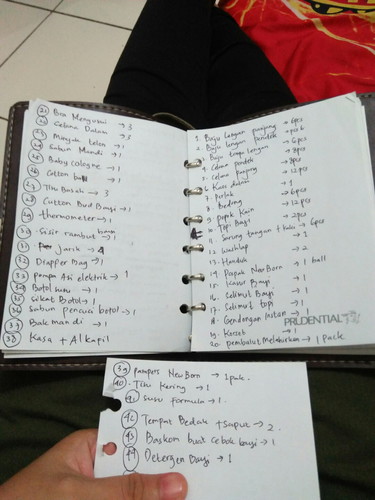 21 Bra Menyusui → 3
22 Celana Dalam → 3
23 Minyak telon → 1
24 Sabun Mandi → 1
25 Baby cologne → 1
26 Cotton ball → 1
27 Tisu Basah → 3
28 Cutton Bud Bayi → 1
29 thermometer → 1
30 Sisir rambut → 1
31 jarik → 4
32 Diapper Bag → 1
33 pompa Asi elektrik → 1
34 Botol susu → 1
35 Sikat Botol → 1
36 Sabun pencuci botol → 1
37 Bak mandi → 1
38 Kasa + Alkafil
1. Baju Lengan panjang → 6pcs
2. Baju lengan pendek → pcs 6
3. Baju tanpa lengan → 8pcs
4. Celana pendek → 8pcs
5. Celana panjang → 12pcs
6. Kaos dalam → 1
7. Perlak → 6pcs
8. Bedong → 12pcs
9. popok Kain → 2pcs
10. Topi Bayi
11. Sarung tangan + kaki → 6pcs
12. Washlap → 2
13. Handuk
14. Popok New Born → 1 ball
15. Kasur Bayi → 1
16. Selimut Bayi → 1
17. Selimut topi → 1
18. Gendongan instan → 1
19. Korset → 1
20. pembalut Melahirkan → 1 Pack
PRUDENTIAL
39 Pampers New Born → 1pak.
40. Tisu Kering → 1
41 susu formula → 1.
42 Tempat Bedak + sapur → 2.
43 Baskom buat cebok bayi → 1
44 Detergen Bayi → 1